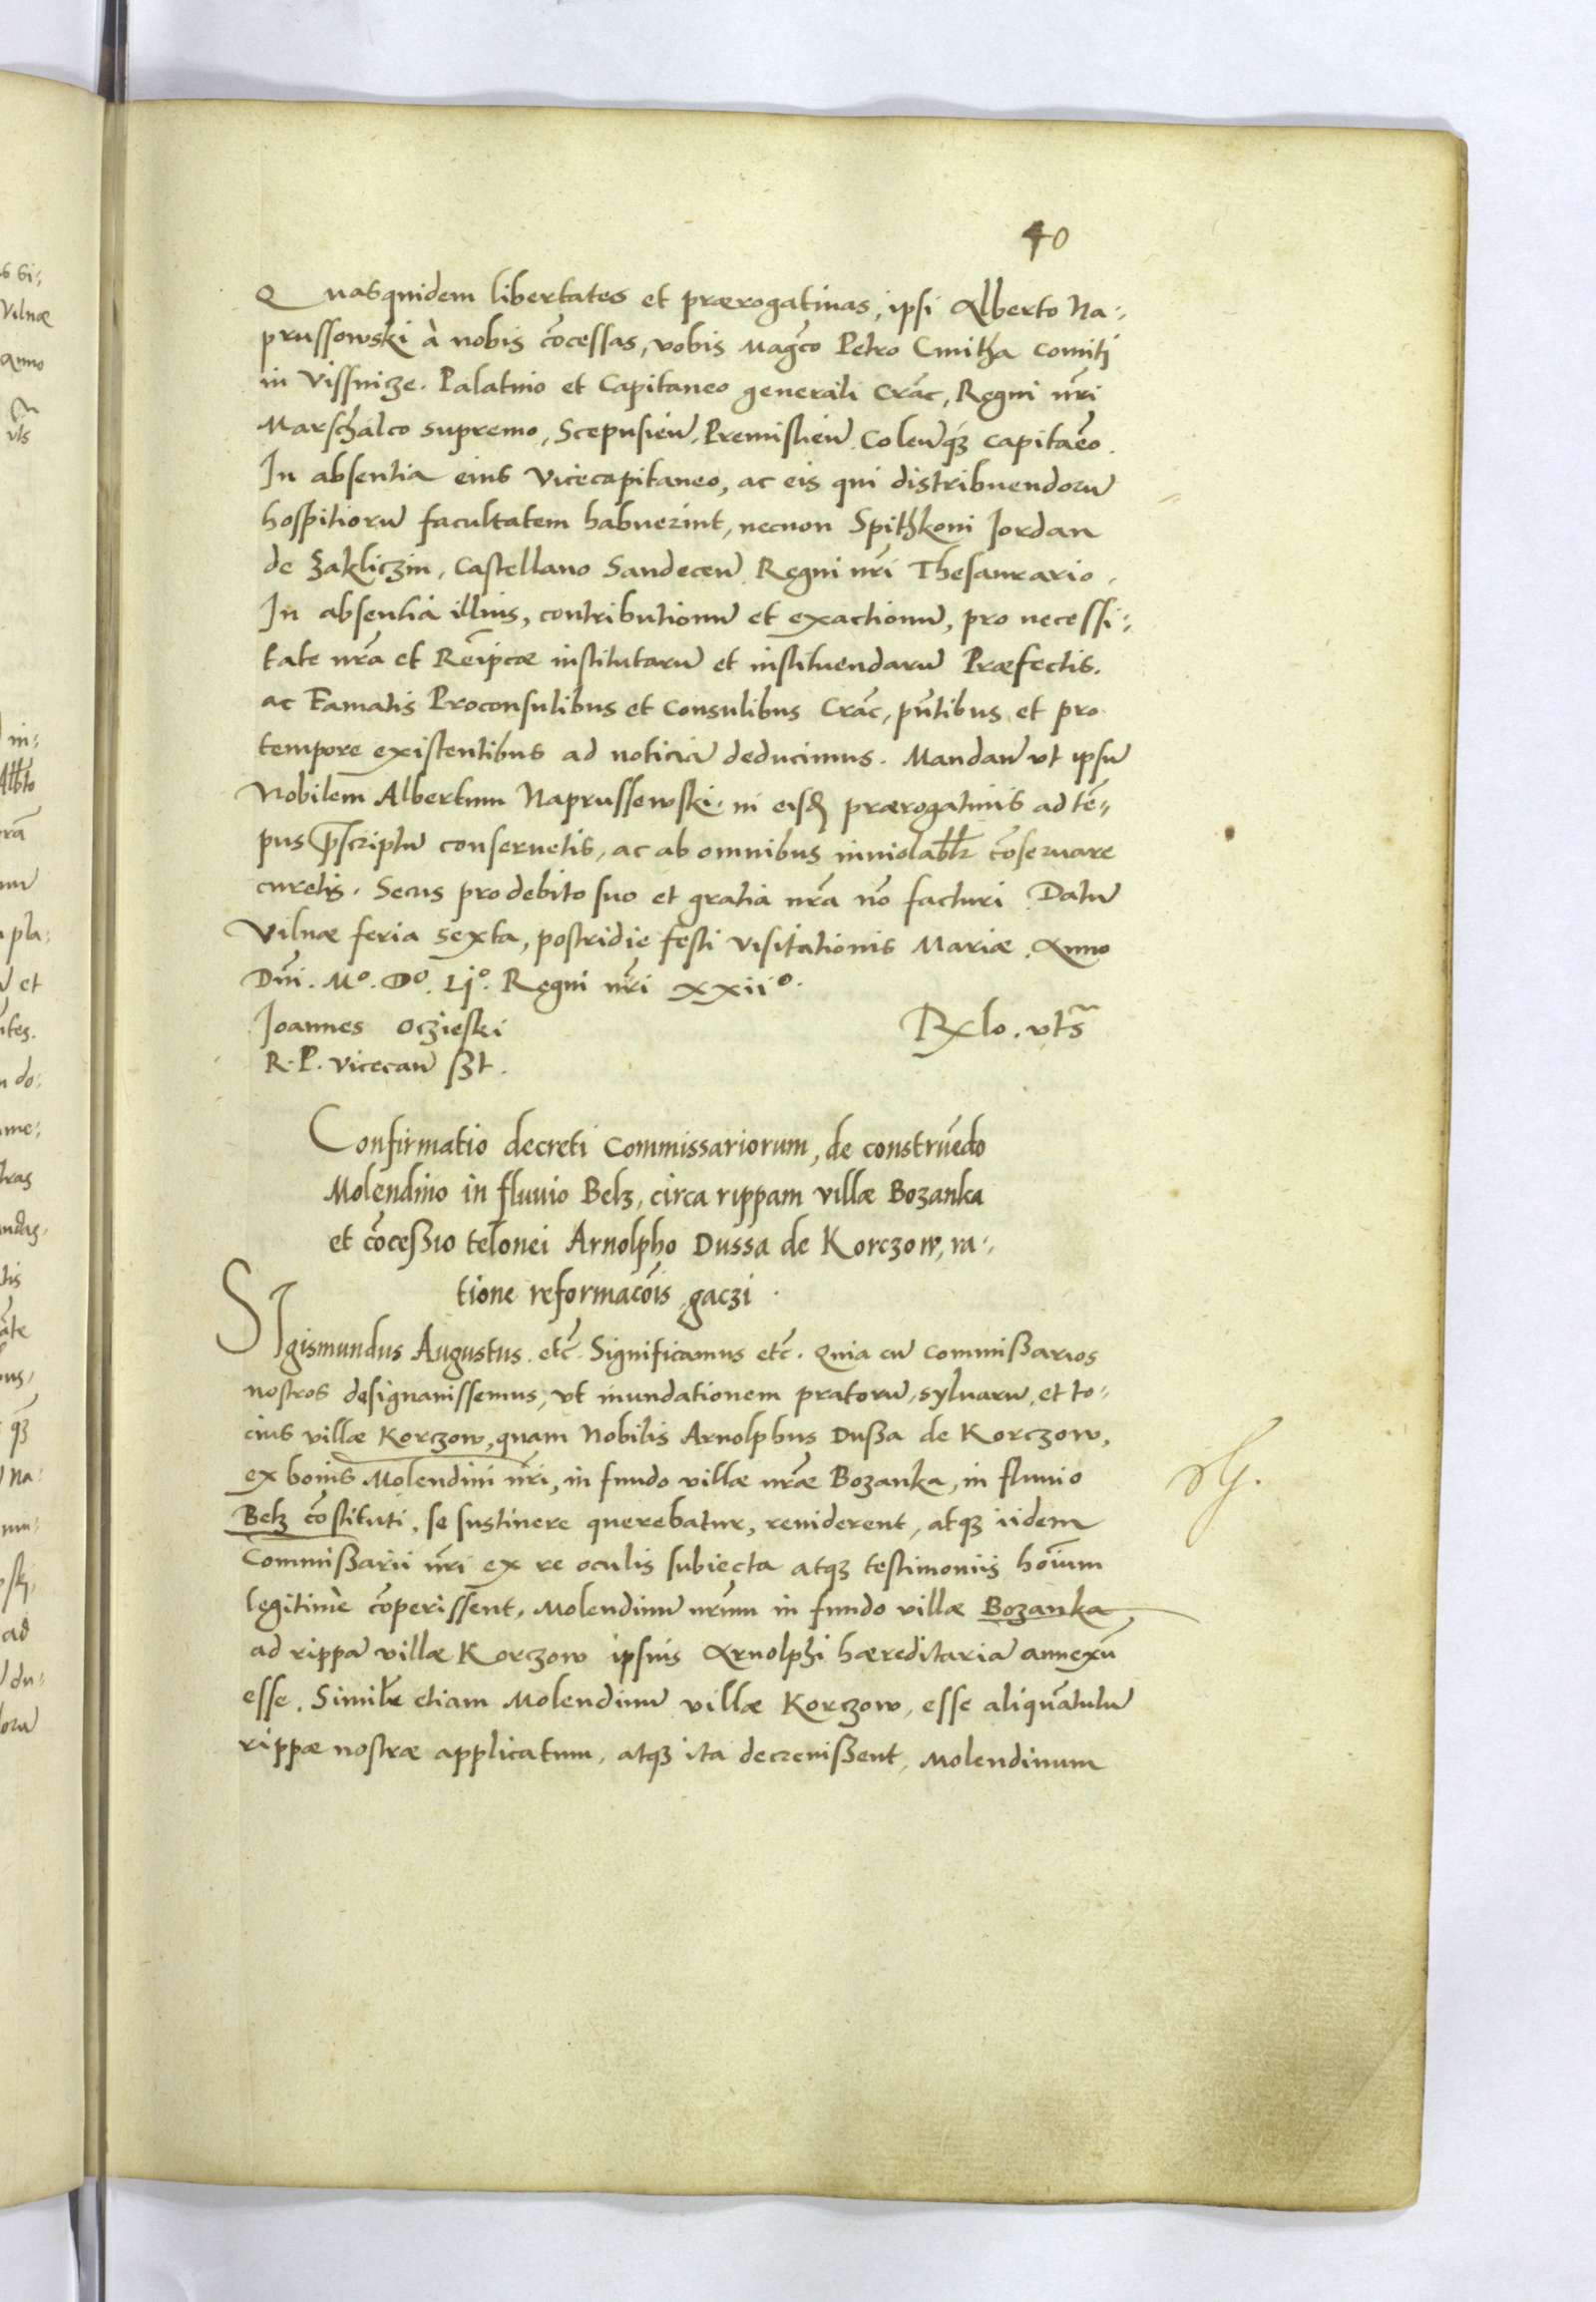 40
Quasquidem libertates et prærogatiuas, ipsi Alberto Na:
prussowski à nobis co͂cessas, vobis Mag͂co Petro Cmitha comiti
in Vissnicze. Palatino et Capitaneo generali Crac͂, Regni nr͂i
Marschalco supremo, Scepusien͂, Premislien͂ Colen͂q3 capitan͂eo.
In absentia eius Vicecapitaneo, ac eis qui distribuendoru͂
hospitioru͂ facultatem habuerint, necnon Spithkoni Jordan
de Zakliczin, Castellano Sandecen͂ Regni nr͂i Thesaurario,
In absentia illius, contributionu͂ et exactionu͂, pro necessi:
tate nr͂a et Reip͂cæ institutaru͂ et instituendaru͂ Præfectis.
ac Famatis Proconsulibus et Consulibus Crac͂, pn͂tibus et pro
tempore existentibus ad noticia͂ deducimus. Mandan͂ vt ipsu͂
Nobilem Albertum Naprussewski in eisd͂ prærogatiuis ad te͂=
pus p͂scriptu͂ conseruetis, ac ab omnibus inuiolabl͂r co͂seruare
curetis. Secus pro debito suo et gratia nr͂a no͂ facturi Datu͂
Vilnæ feria sexta, postridie festi visitationis Mariæ. Anno
Dn͂i. Mº. Dº. Ljº. Regni nr͂i xxiiº.
Joannes Oczieski
Rx lo. vts͂
R. P. Vicecan͂ sszt.
Confirmatio decreti Commissariorum, de construe͂do
Molendino in fluuio Belz, circa rippam villæ Bozanka
et co͂ceßio telonei Arnolpho Dussa de Korczow, ra:
tione reformaco͂is gaczi.
SIgismundus Augustus. etc͂. Significamus etc͂. Quia cu͂ Commißarios
nostros designauissemus, vt inundationem pratoru͂, syluaru͂, et to=
cius villæ Korczow, quam Nobilis Arnolphus Dußa de Korczow,
ex bonis Molendini nr͂i, in fundo villæ nr͂æ Bozanka, in fluuio
Belz co͂stituti, se sustinere querebatur, reuiderent, atq3 iidem
Commißarii nr͂i ex re oculis subiecta atq3 testimoniis ho͂ium
legitimè co͂perissent, Molendinu͂ nr͂um in fundo villæ Bozanka,
ad rippa͂ villæ Korczow ipsius Arnolphi hæreditaria͂ annexu͂
esse. Similr͂ etiam Molendinu͂ villæ Korczow, esse aliqua͂tulu͂
rippæ nostræ applicatum, atq3 ita decreuißent, Molendinum